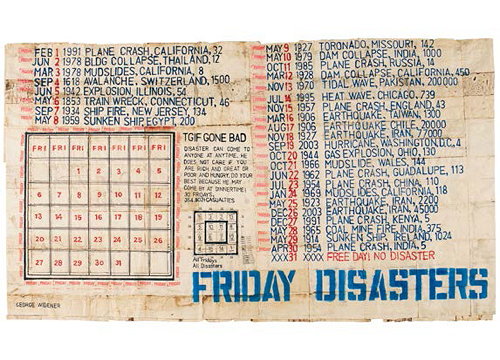 FEB 1 1991 PLANE CRASH, CALIFORNIA, 32
JUN 2 1978 BLDG COLLAPSE, THAILAND, 12
MAR 3 1978 MUDSLIDES, CALIFORNIA, 8
SEP 4 1618 AVALANCHE, SWITZERLAND, 1500
JUN 5 1942 EXPLOSION, ILLINOIS, 54
MAY 6 1853 TRAIN WRECK, CONNECTICUT, 46
SEP 7 1934 SHIP FIRE, NEW JERSEY, 134
MAY 8 1959 SUNKEN SHIP, EGYPT, 200
FRI FRI FRI FRI FRI FRI FRI
6 7 8 9 10 11 12
13 14 15 16 17 18 19
20 21 22 23 24 25 26
27 28 29 30 31
TGIF GONE BAD
DISASTER CAN COME TO
ANYONE AT ANYTIME, HE
DOES NOT CARE IF YOU
ARE RICH AND GREAT OR
POOR AND HUNGRY. DO YOUR
BEST BECAUSE HE MAY
COME BY AT DINNERTIME!
30 FRIDAYS
All Fridays
All Disasters
MAY 9 1927 TORONADO, MISSOURI, 142
MAY 10 1979 DAM COLLAPSE, INDIA, 1000
OCT 11 1985 PLANE CRASH, RUSSIA, 14
MAR 12 1928 DAM COLLAPSE, CALIFORNIA, 450
NOV 13 1970 TIDAL WAVE, PAKISTAN, 200000
JUL 14 1995 HEAT WAVE, CHICAGO, 739
NOV 15 1957 PLANE CRASH, ENGLAND, 43
MAR 16 1906 EARTHQUAKE, TAIWAN, 1300
AUG 17 1906 EARTHQUAKE, CHILE, 20000
NOV 18 1927 EARTHQUAKE, IRAN, 77000
SEP 19 2003 HURRICANE, WASHINGTON, D.C., 4
OCT 20 1944 GAS EXPLOSION, OHIO, 130
OCT 21 1966 MUDSLIDE, WALES, 144
JUN 22 1962 PLANE CRASH, GUADALUPE, 113
JUL 23 1954 PLANE CRASH, CHINA, 110
JAN 24 1969 MUDSLIDES, CALIFORNIA, 118
MAY 25 1923 EARTHQUAKE, IRAN, 2200
DEC 26 2003 EARTHQUAKE, IRAN, 45000
DEC 27 1991 PLANE CRASH, KENYA, 5
MAY 28 1965 COAL MINE FIRE, INDIA, 375
MAY 29 1914 SUNKEN SHIP, IRELAND, 1024
APR 30 1954 PLANE CRASH, INDIA, 5
XXX 31 XXXX FREE DAY! NO DISASTER
FRIDAY DISASTERS
GEORGE WIDENER